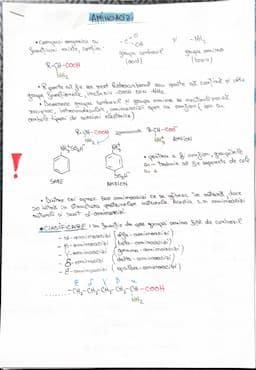 AMINOACIZI
• Compuși organici cu
funcțiuni mixte, conțin:
-C=O
OH
grupa carboxil
(acid)
și
-NH₂
grupa amino
(bază)
R-CH-COOH
NH₂
• R poate să fie un rest hidrocarbonat sau poate să conțină și alte
grupe funcționale, inclusiv -COOH sau -NH₂
• Deoarece grupa carboxil și grupa amino se neutralizează
R-CH-COOH
NH₂
R-CH-COO⁻
NH₃⁺ AMFION
NH₂
SO₃H
NH₃⁺
SO₃⁻
AMFION
!
• pentru a fi amfion, grupările
nu trebuie să fie separate de
• Dintre cei aprox. 500 aminoacizi ce se găsesc în natură, doar
20 intră în structura proteinelor naturale. Aceștia s.n. aminoacizi
naturali și sunt α-aminoacizi
• CLASIFICARE: în funcție de grupa amino față de carboxil
- α-aminoacizi (alfa-aminoacizi)
- β-aminoacizi (beta-aminoacizi)
- γ-aminoacizi (gamma-aminoacizi)
- δ-aminoacizi (delta-aminoacizi)
- ε-aminoacizi (epsilon-aminoacizi)
ε δ γ β α
-CH₂-CH₂-CH₂-CH₂-CH-COOH
NH₂